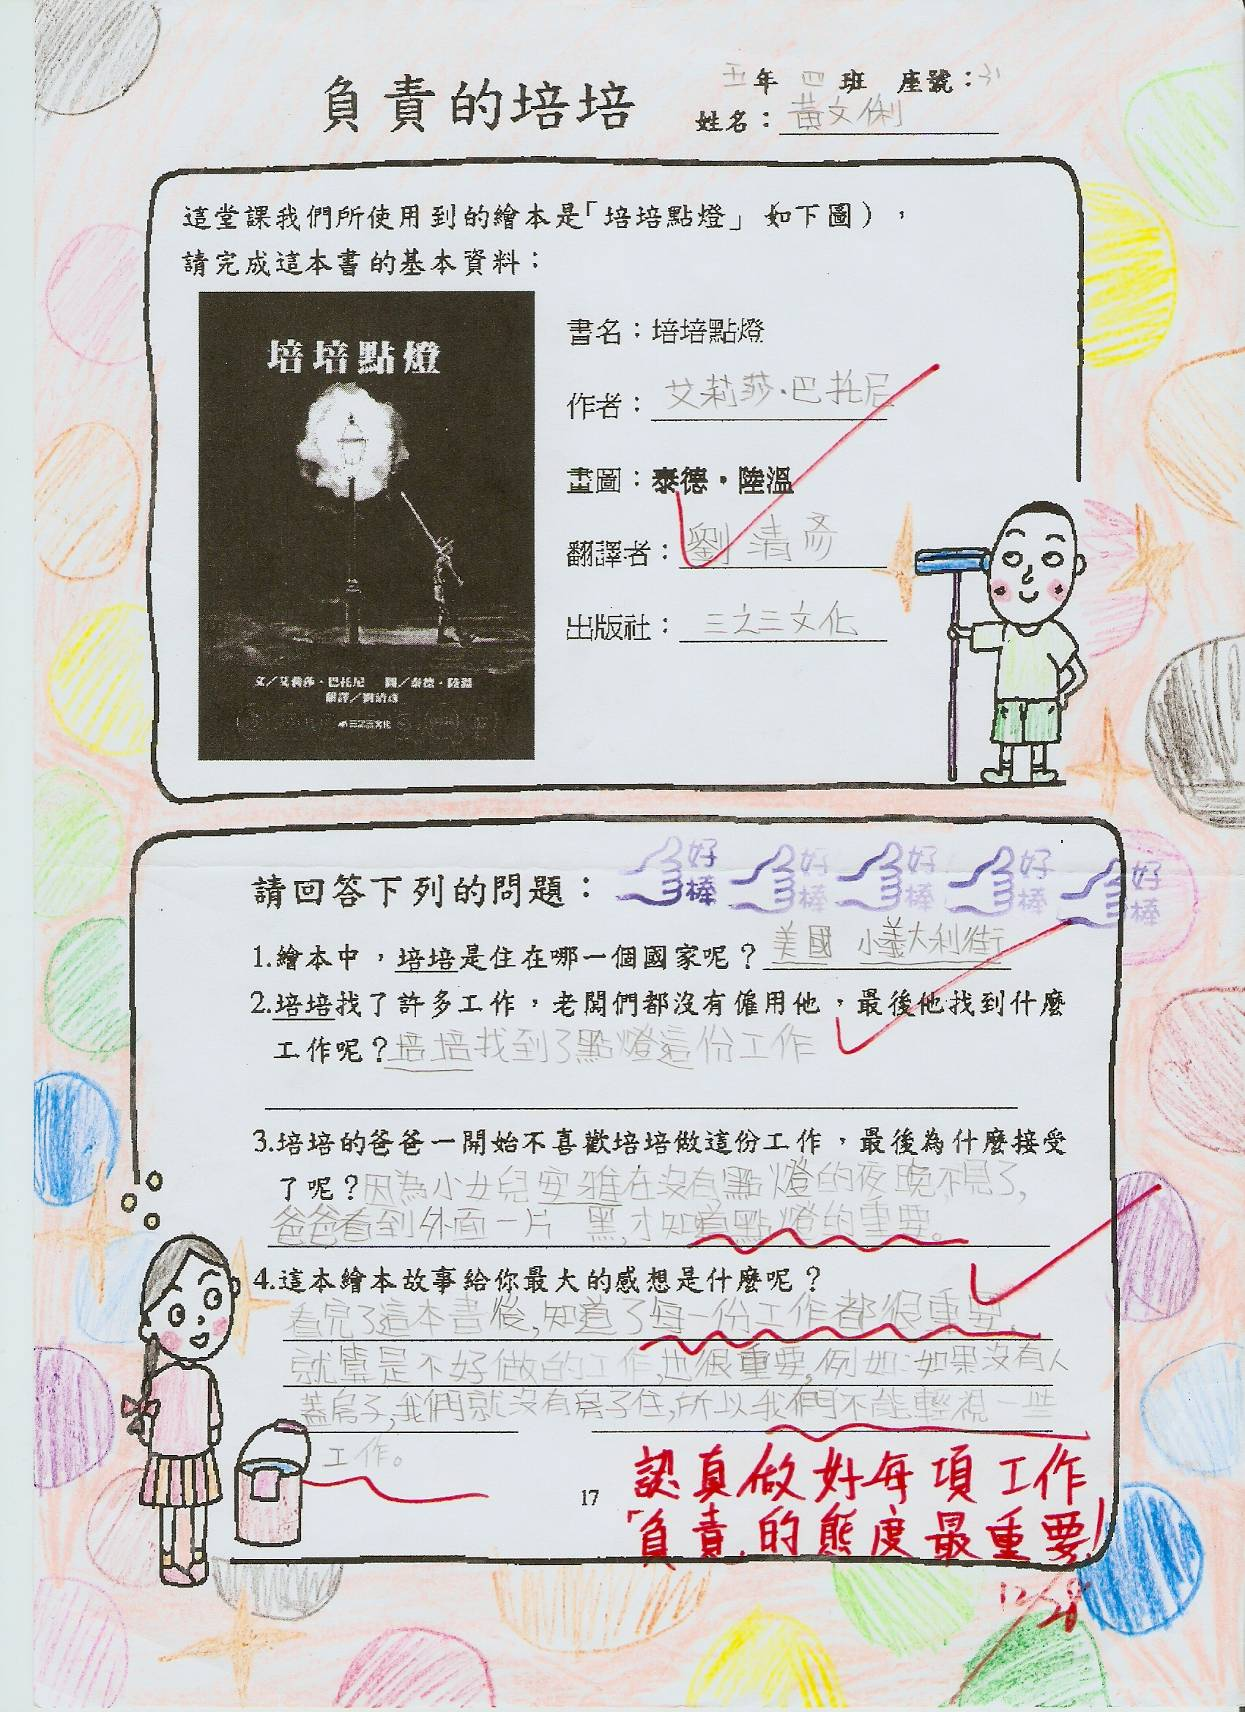 負責的培培
五年 四班 座號：31
姓名：黃文俐
這堂課我們所使用到的繪本是「培培點燈」（如下圖），
請完成這本書的基本資料：
培培點燈
文／艾莉莎・巴托尼 圖／泰德・陸溫
翻譯／劉清彥
三之三文化
書名：培培點燈
作者：艾莉莎・巴托尼
畫圖：泰德・陸溫
翻譯者：劉清彥
出版社：三之三文化
請回答下列的問題：
好棒 好棒 好棒 好棒 好棒
1.繪本中，培培是住在哪一個國家呢？美國 小義大利街
2.培培找了許多工作，老闆們都沒有僱用他，最後他找到什麼
工作呢？培培找到了點燈這份工作
3.培培的爸爸一開始不喜歡培培做這份工作，最後為什麼接受
了呢？因為小女兒安雅在沒有點燈的夜晚不見了，
爸爸看到外面一片 黑，才知道點燈的重要。
4.這本繪本故事給你最大的感想是什麼呢？
看完了這本書後，知道了每一份工作都很重要，
就算是不好做的工作，也很重要，例如：如果沒有人
蓋房子，我們就沒有房子住，所以我們不能輕視一些
工作。
17
認真做好每項工作
「負責」的態度最重要！
12/28